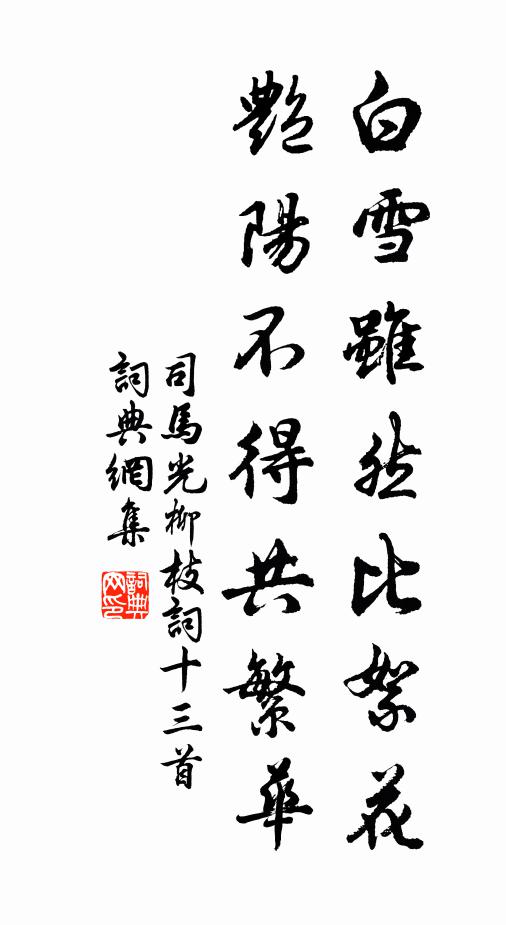 白雪雖然比絮花
艷陽不得共繁華
司馬光柳枝詞十三首
詞典網集
詞典網印